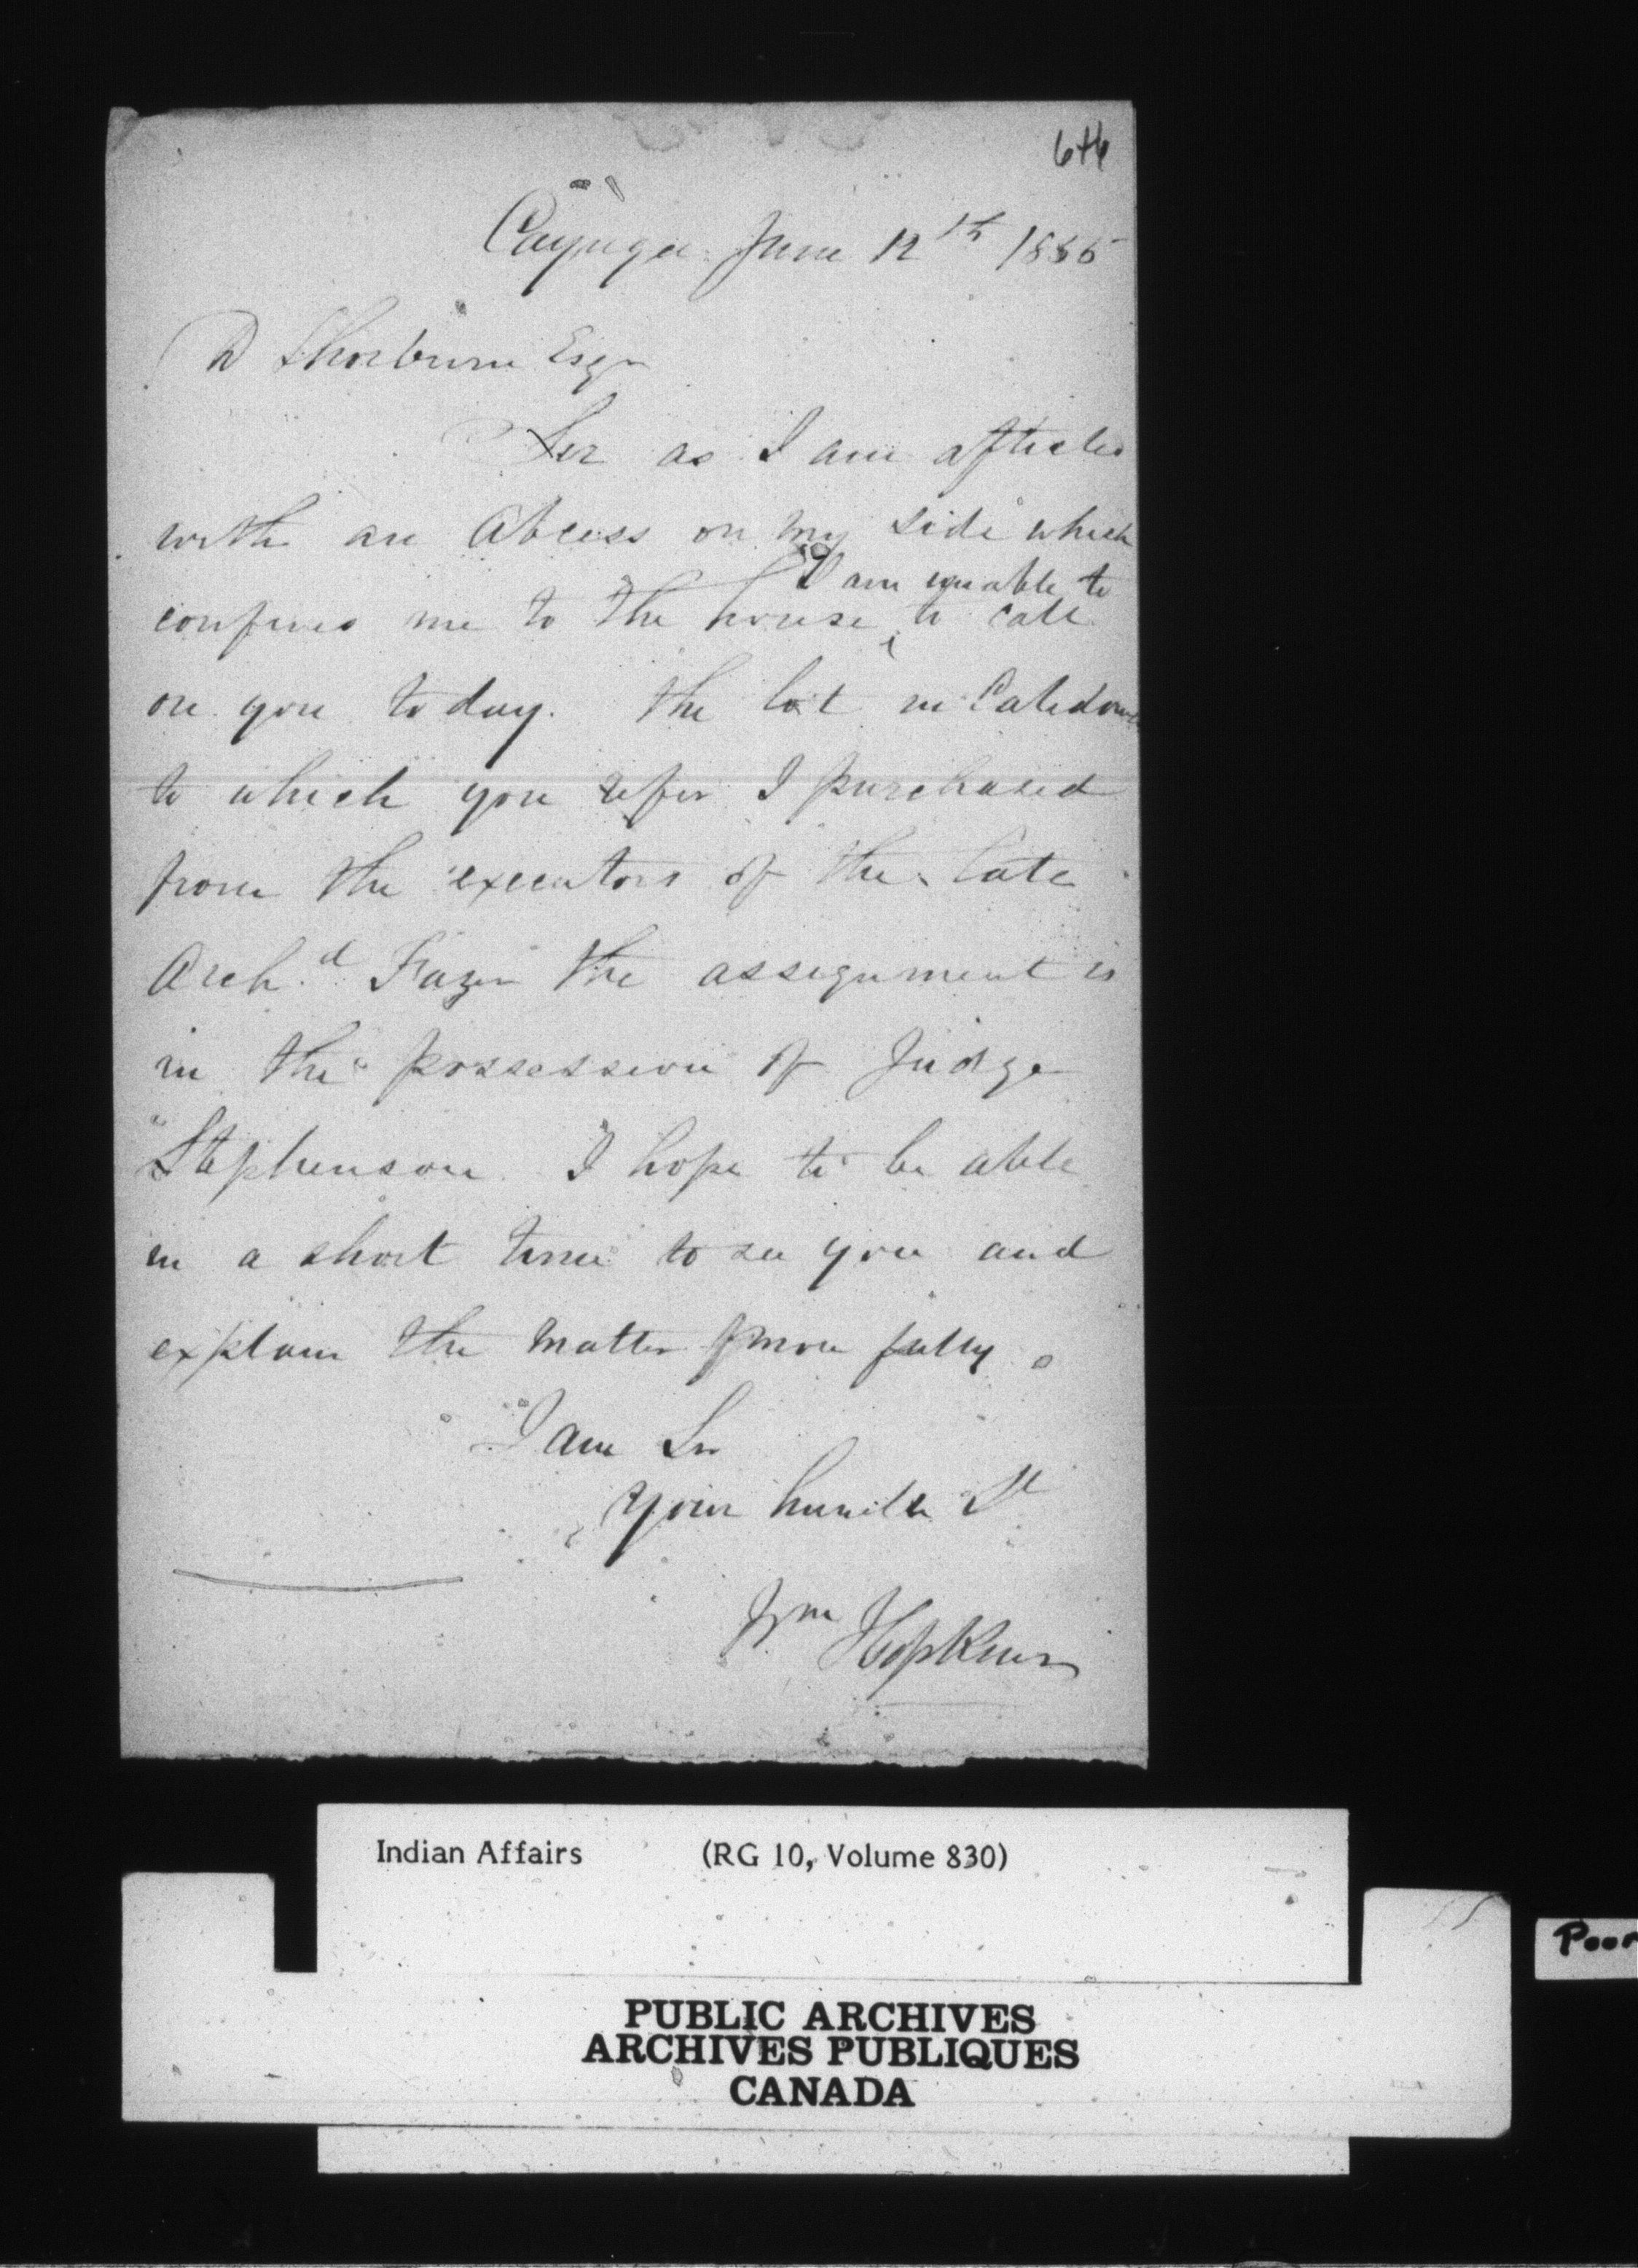 646
Cayuga June 12th 1855
D Thorburn Esqr
Sir as I am aflicted
with an Abcess on my side which
I am unable to
confines me to the house to call
on you to day. the lot in Caledonia
to which you refer I purchased
from the executors of the late
Archd Frazer the assignment is
in the possession of Judge
Stephenson. I hope to be able
in a short time to see you and
explain the matter more fully.
I am Sir
your humble St
Wm Hopkins
Indian Affairs (RG 10, Volume 830)
Poor
PUBLIC ARCHIVES
ARCHIVES PUBLIQUES
CANADA